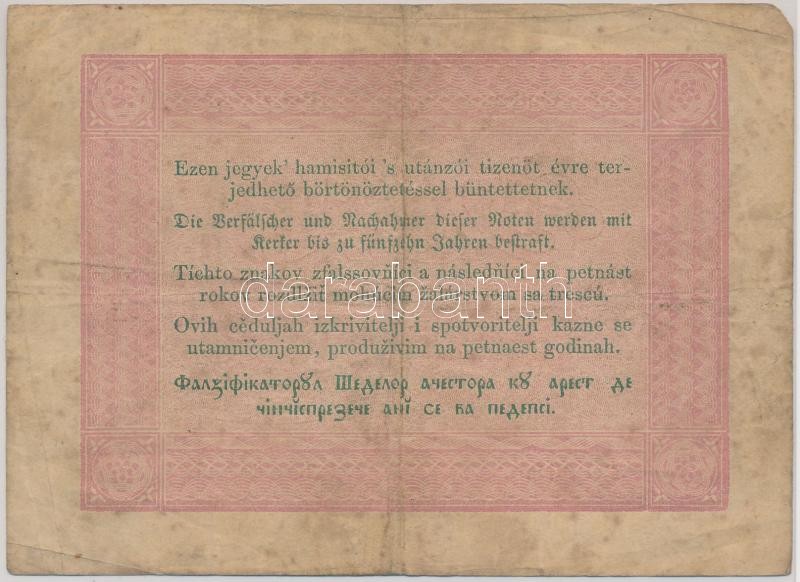 Ezen jegyek' hamisitói 's utánzói tizenöt évre ter-
jedhető börtönöztetéssel büntettetnek.
Die Verfälscher und Nachahmer dieser Noten werden mit
Kerker bis zu fünfzehn Jahren bestraft.
Tíchto znakov zfalssovňíci a následňíci na petnást
rokov rozdlžit žalárstvom sa trescú.
darabanth
Ovih ceduljah izkrivitelji i spotvoritelji kazne se
utamničenjem, produživim na petnaest godinah.
Фалзіфікаторꙋл Шеделор ачестора кꙋ арест де
чінчіспрезече ані се ва педепсі.